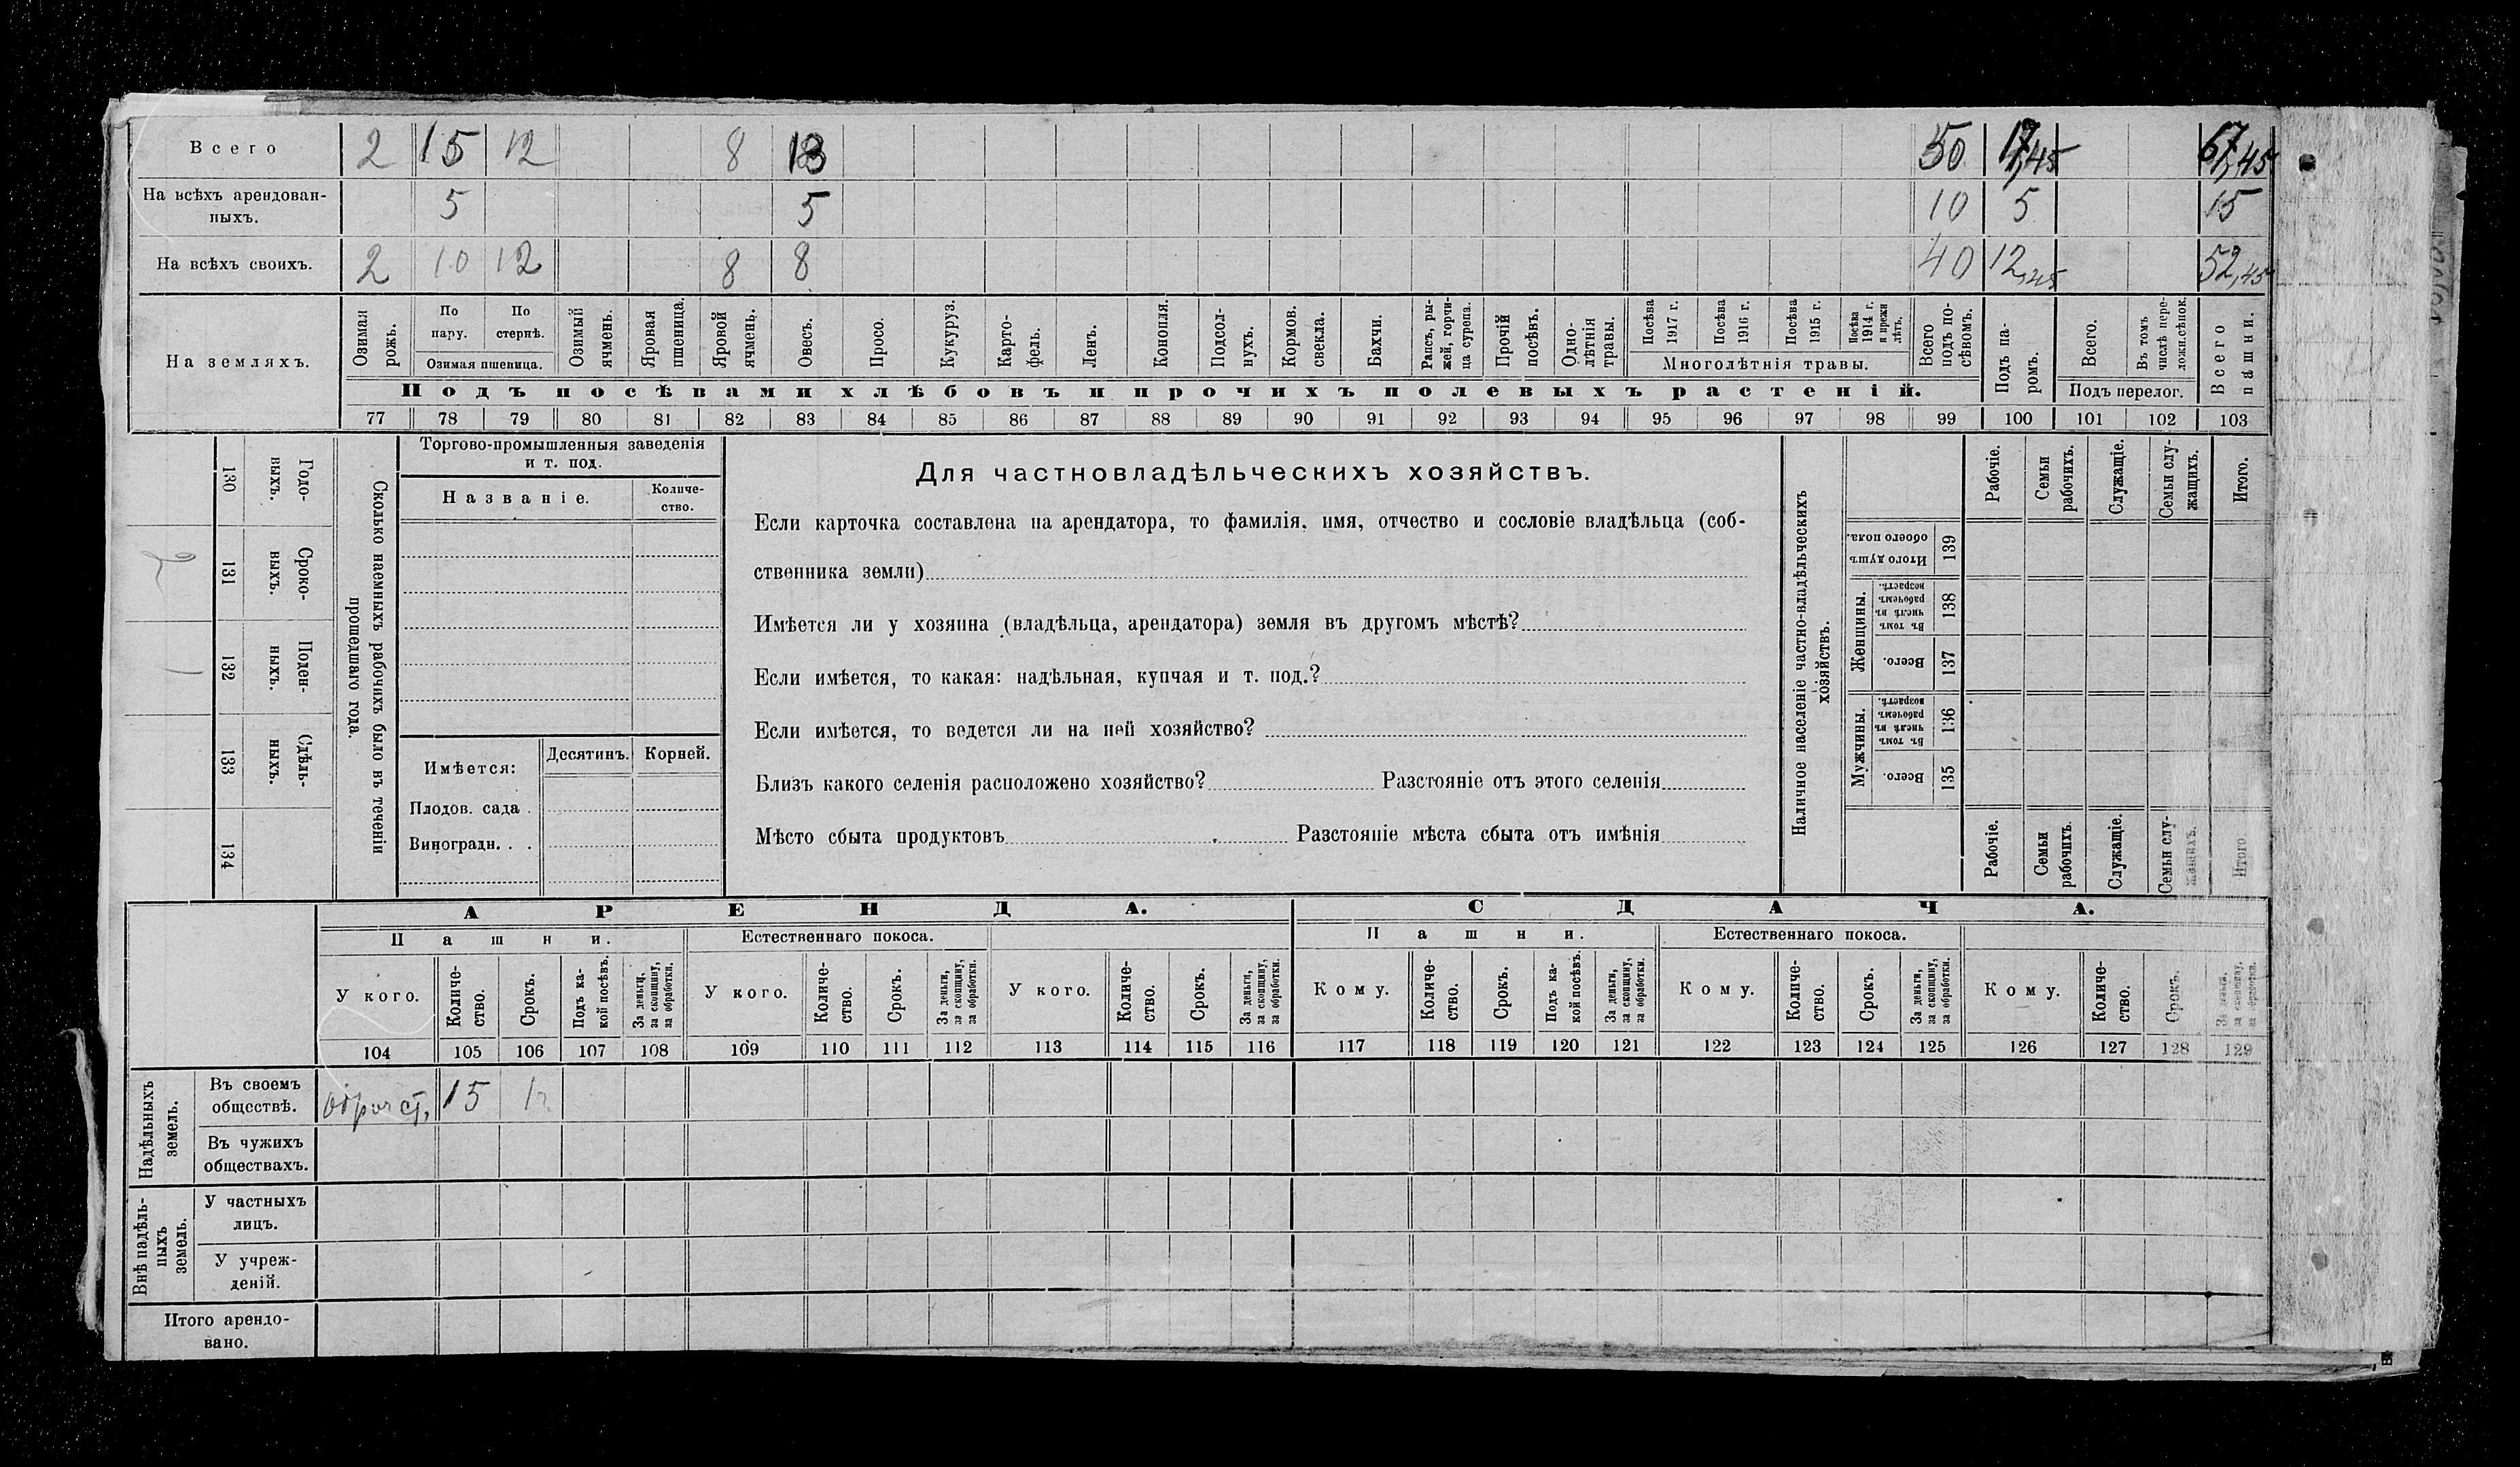 Всего 2 15 12 8 13 50 17,45 67,45
На всѣхъ арендован-
ныхъ. 5 5 10 5 15
На всѣхъ своихъ. 2 10 12 8 8 40 12,45 52,45
На земляхъ.
Озимая рожь.
По пару.
По стернѣ.
Озимая пшеница.
Озимый ячмень.
Яровая пшеница.
Яровой ячмень.
Овесъ.
Просо.
Кукуруз.
Карто-
фель.
Ленъ.
Конопля.
Подсол-
нухъ.
Кормов.
свекла.
Бахчи.
Рапсъ, ры-
жей, горчи-
ца сурепа.
Прочій
посѣвъ.
Одно-
лѣтнія
травы.
Посѣва
1917 г.
Посѣва
1916 г.
Посѣва
1915 г.
Посѣва
1914 г.
и прежн
лѣтъ.
Многолѣтнія травы.
Всего
подъ по-
сѣвомъ.
Подъ па-
ромъ.
Всего.
Въ томъ
числѣ пере-
ложн.сѣнок.
Подъ перелог.
Всего
пашни.
Подъ посѣвами хлѣбовъ и прочихъ полевыхъ растеній.
77 78 79 80 81 82 83 84 85 86 87 88 89 90 91 92 93 94 95 96 97 98 99 100 101 102 103
130 Годо-
выхъ.
131 Сроко-
выхъ.
132 Поден-
ныхъ.
133 Сдѣль-
ныхъ.
134
Сколько наемныхъ рабочихъ было въ теченіи
прошедшаго года.
Торгово-промышленныя заведенія
и т. под.
Названіе.
Количе-
ство.
Имѣется:
Десятинъ.
Корней.
Плодов. сада .
Виноградн. . .
Для частновладѣльческихъ хозяйствъ.
Если карточка составлена на арендатора, то фамилія, имя, отчество и сословіе владѣльца (соб-
ственника земли)
Имѣется ли у хозяина (владѣльца, арендатора) земля въ другомъ мѣстѣ?
Если имѣется, то какая: надѣльная, купчая и т. под.?
Если имѣется, то ведется ли на ней хозяйство?
Близъ какого селенія расположено хозяйство? Разстояніе отъ этого селенія
Мѣсто сбыта продуктовъ Разстояніе мѣста сбыта отъ имѣнія
Наличное населеніе частно-владѣльческихъ
хозяйствъ.
Рабочіе.
Семьи
рабочихъ.
Служащіе.
Семьи слу-
жащихъ.
Итого.
Итого душъ
обоего пола.
139
Женщины.
Въ томъ
числѣ въ
рабочемъ
возрастѣ.
138
Всего.
137
Мужчины.
Въ томъ
числѣ въ
рабочемъ
возрастѣ.
136
Всего.
135
Рабочіе.
Семьи
рабочихъ.
Служащіе.
Семьи слу-
жащихъ.
Итого
АРЕНДА. СДАЧА.
Пашни. Естественнаго покоса. Пашни. Естественнаго покоса.
У кого.
Количе-
ство.
Срокъ.
Подъ ка-
кой посѣвъ.
За деньги,
за скопщину,
за обработки.
У кого.
Количе-
ство.
Срокъ.
За деньги,
за скопщину,
за обработки.
У кого.
Количе-
ство.
Срокъ.
За деньги,
за скопщину,
за обработки.
Кому.
Количе-
ство.
Срокъ.
Подъ ка-
кой посѣвъ.
За деньги,
за скопщину,
за обработки.
Кому.
Количе-
ство.
Срокъ.
За деньги,
за скопщину,
за обработки.
Кому.
Количе-
ство.
Срокъ.
За деньги,
за скопщину,
за обработки.
104 105 106 107 108 109 110 111 112 113 114 115 116 117 118 119 120 121 122 123 124 125 126 127 128 129
Надѣльныхъ
земель.
Въ своемъ
обществѣ. 15 1
Въ чужихъ
обществахъ.
Внѣ надѣль-
ныхъ
земель.
У частныхъ
лицъ.
У учреж-
деній.
Итого арендо-
вано.